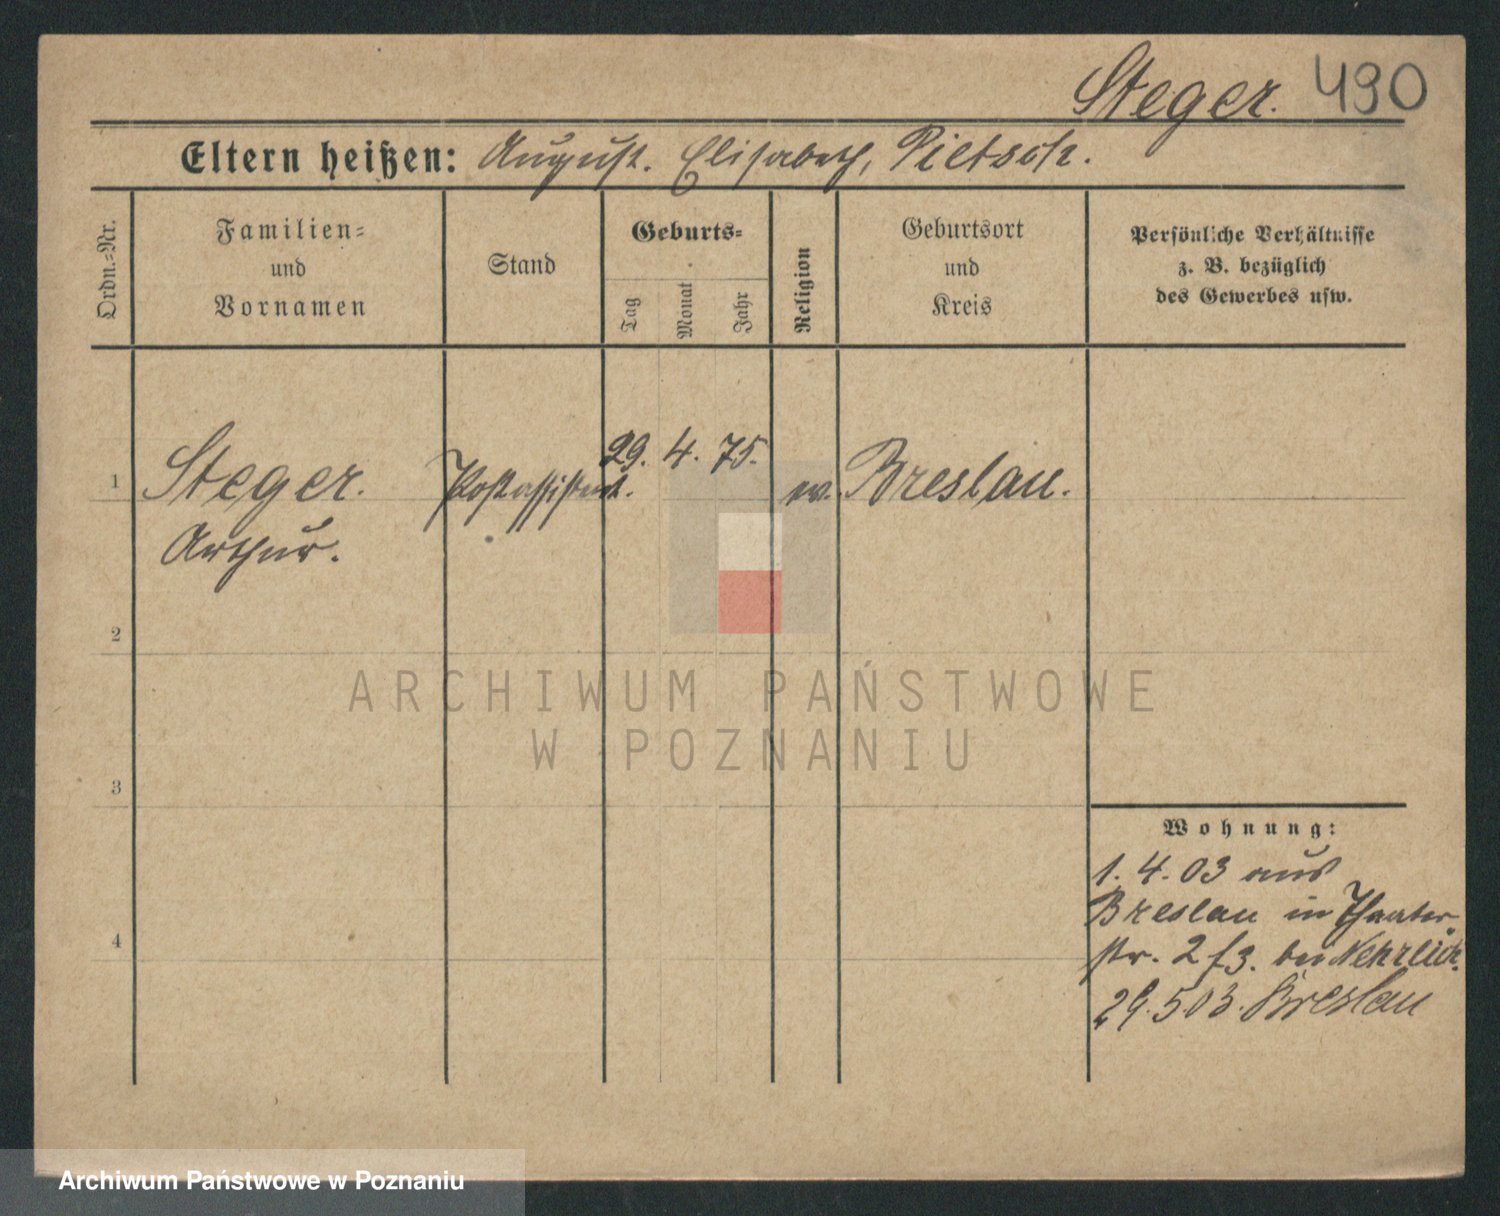 Steger. 490
Eltern heißen: August. Elisabeth, Pietsch.
Ordn.=Nr.
Familien=
und
Vornamen
Stand
Geburts=
Tag
Monat
Jahr
Religion
Geburtsort
und
Kreis
Persönliche Verhältnisse
z. B. bezüglich
des Gewerbes usw.
1
Steger.
Arthur.
Postassistent.
29. 4. 75.
ev.
Breslau.
2
3
4
Wohnung:
1. 4. 03 aus
Breslau in Theater
str. 2 f3. bei Nehrlich.
29. 5. 03. Breslau
ARCHIWUM PAŃSTWOWE
W POZNANIU
Archiwum Państwowe w Poznaniu